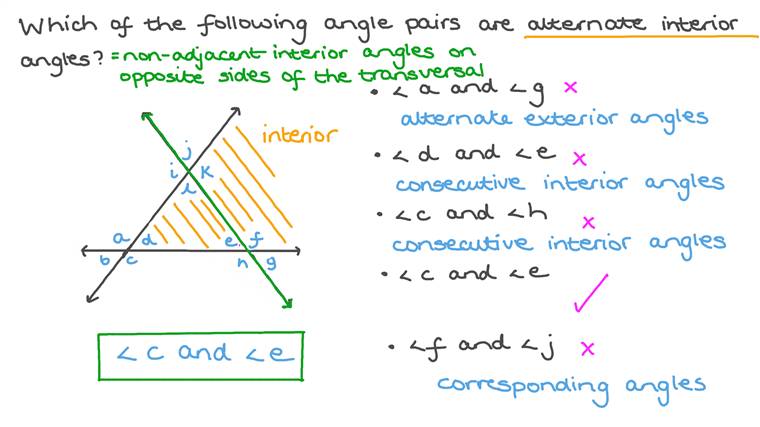 Which of the following angle pairs are alternate interior
angles? = non-adjacent interior angles on
opposite sides of the transversal
• ∠a and ∠g ×
alternate exterior angles
• ∠d and ∠e ×
consecutive interior angles
• ∠c and ∠h ×
consecutive interior angles
• ∠c and ∠e ✓
• ∠f and ∠j ×
corresponding angles
interior
j
i k
l
a d e f
b c h g
∠c and ∠e